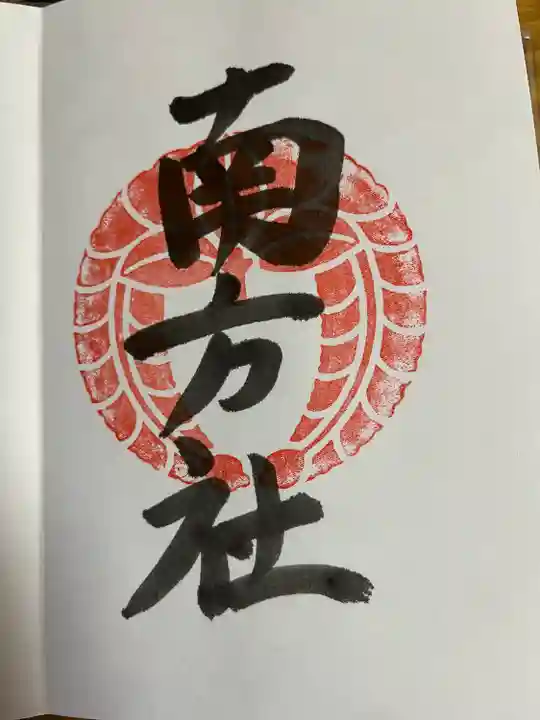 南方社